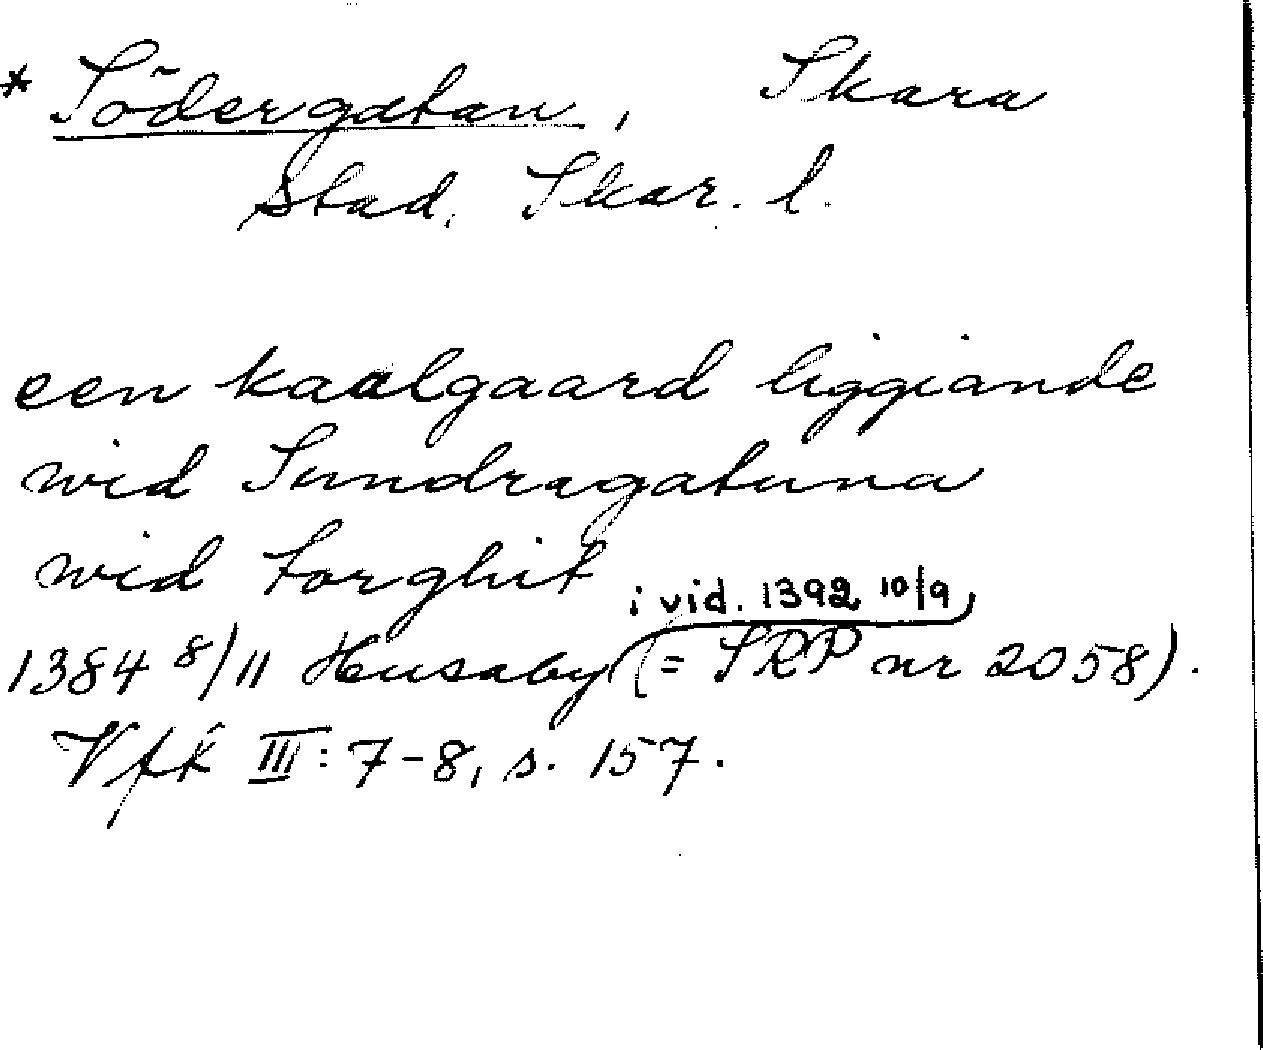 * Södergatan, Skara
stad, Skar. l.
een kaalgaard liggiande
wid Sundragatuna
wid torghit
i vid. 1392 10/9,
1384 8/11 Husaby (= SRP nr 2058).
Vfk III: 7-8, s. 157.